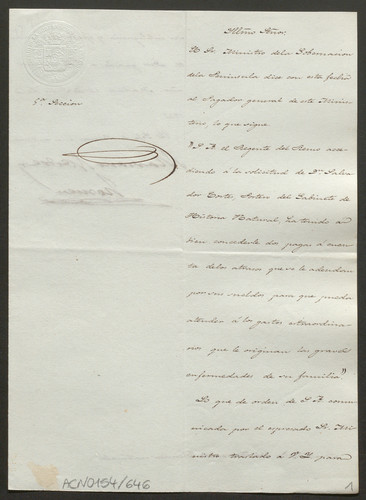 Illmo Señor:
El Sr. Ministro de la Gobernacion
de la Peninsula dice con esta fecha
al Pagador general de este Minis-
terio, lo que sigue
5ª Seccion
"S. A. el Regente del Reino acce-
diendo á la solicitud de Dn. Salva-
dor Duchen, del Gabinete de
Historia Natural, ha tenido á
bien concederle dos pagas á cuenta
de los atrasos que se le adeudan
por sus sueldos para que pueda
atender á los gastos extraordina-
rios que le originan las graves
enfermedades de su familia."
Lo que de orden de S. A. comu-
nicada por el espresado Sr. Mi-
nistro traslado á V. I. para
ACN0154/646
1